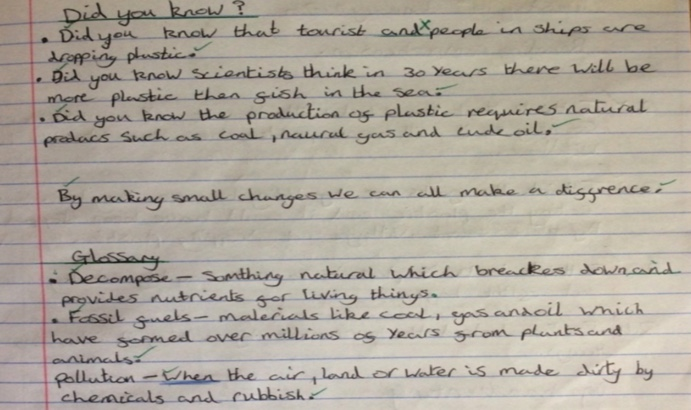 Did you know?
• Did you know that tourist and people in ships are
dropping plastic.
• Did you know scientists think in 30 years there will be
more plastic then fish in the sea.
• Did you know the production of plastic requires natural
prodacs such as coal, naural gas and cude oil.
By making small changes we can all make a diffrence.
Glossary
• Decompose – Somthing natural which breackes down and
provides nutrients for living things.
• Fossil fuels – malerials like coal, gas and oil which
have formed over millions of years from plants and
animals.
pollution – When the air, land or water is made dirty by
chemicals and rubbish.